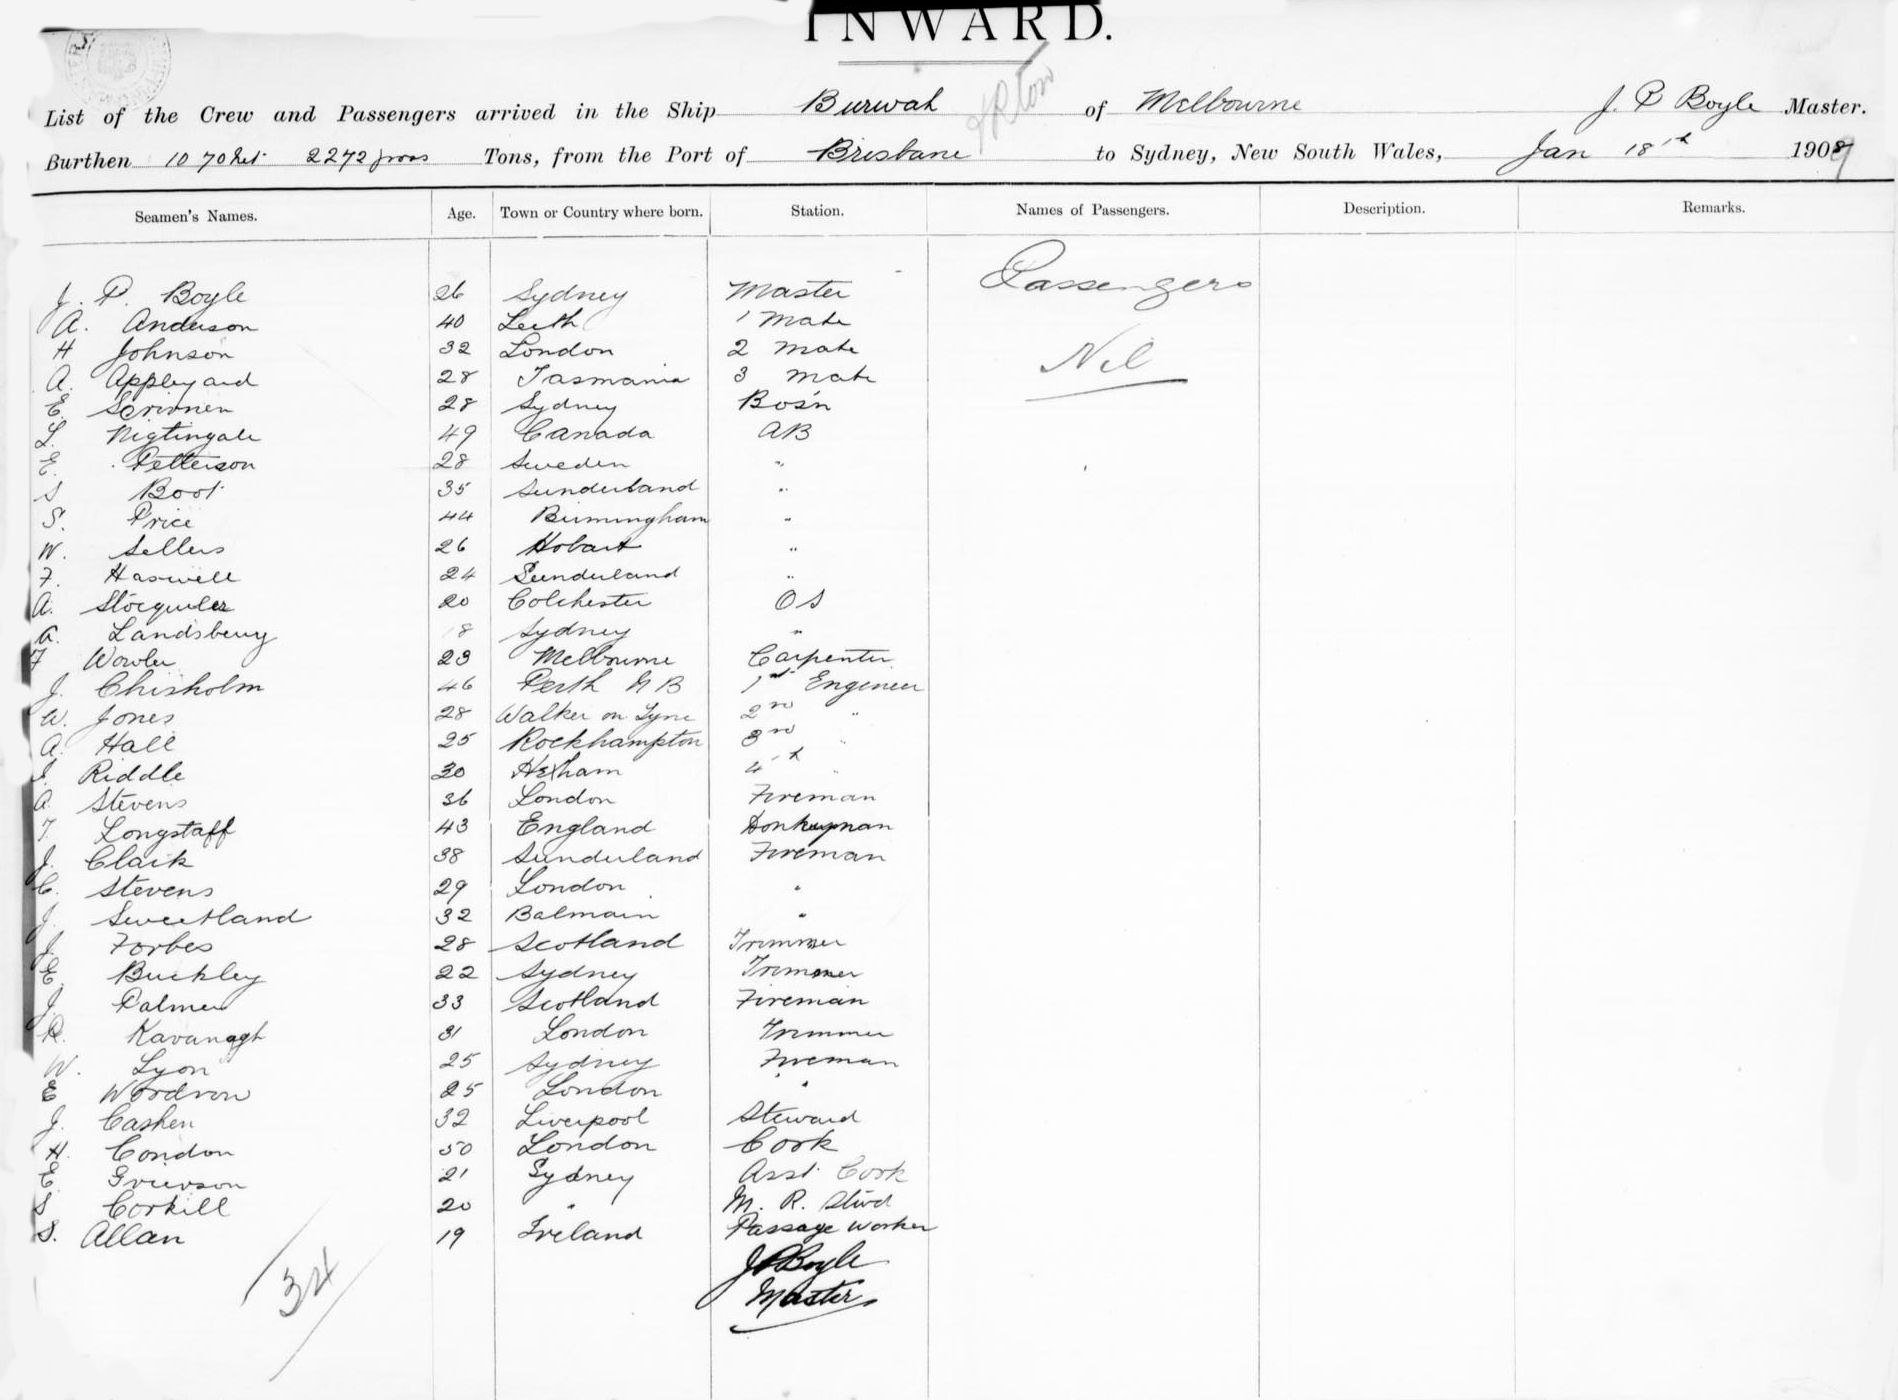 INWARD.
List of the Crew and Passengers arrived in the Ship Burwah of Melbourne J. P Boyle Master.
Burthen 1070 Net 2272 gross Tons, from the Port of Brisbane to Sydney, New South Wales, Jan 18th 1909
Seamen's Names. Age. Town or Country where born. Station. Names of Passengers. Description. Remarks.
Passengers
J. P. Boyle 26 Sydney Master
A. Anderson 40 Leith 1 Mate
H Johnson 32 London 2 Mate
Nil
A. Appleyard 28 Tasmania 3 Mate
E. Scrivnen 28 Sydney Bos'n
L. Nigtingale 49 Canada AB
E. Petterson 28 Sweden "
S Boot 35 Sunderland "
S. Price 44 Birmingham "
W. Sellers 26 Hobart "
F. Haswell 24 Sunderland "
A. Stocquiler 20 Colchester OS
A. Landsberry 18 Sydney "
F Wowler 23 Melbourne Carpenter
J. Chisholm 46 Perth N B 1st Engineer
W. Jones 28 Walker on Tyne 2nd "
A. Hall 25 Rockhampton 3rd "
J. Riddle 30 Hexham 4th "
A. Stevens 36 London Fireman
T. Longstaff 43 England Donkeyman
J. Clark 38 Sunderland Fireman
C. Stevens 29 London "
J. Sweetland 32 Balmain "
J. Forbes 28 Scotland Trimmer
E. Buckley 22 Sydney Trimmer
J. Palmer 33 Scotland Fireman
R. Kavanagh 31 London Trimmer
W. Lyon 25 Sydney Fireman
E Wordron 25 London "
J. Cashen 32 Liverpool Steward
H. Condon 50 London Cook
E. Grierson 21 Sydney Asst. Cook
S Corkill 20 " M. R. Stwd
S. Allan 19 Ireland Passage Worker
J P Boyle
34
Master